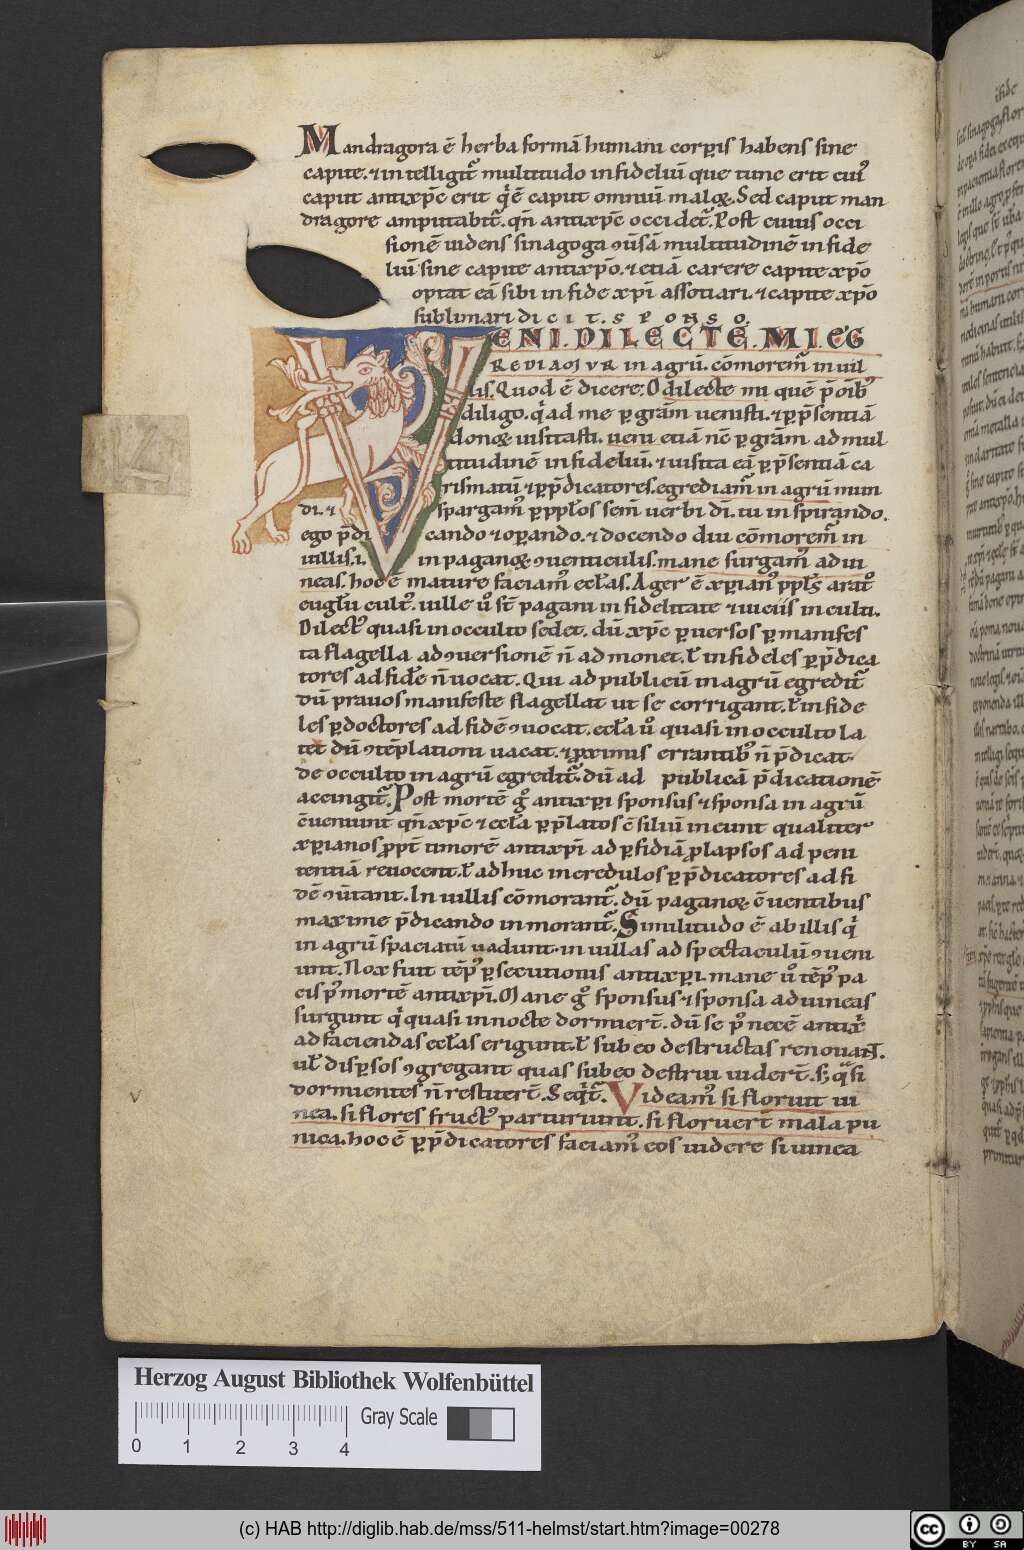 Mandragora ē herba formā humani corꝑis habens sine
capite. ⁊ intelligit᷑ multitudo infideliū que tunc erit cui᷒
caput antixp̄c erit q̇ ē caput omniū maloꝝ. Sed caput man
dragore amputabit᷑. qn̄ antixp̄c occidet᷑. Post cuius occi
sionē uidens sinagoga ꝯuersā multitudinē infide
liū sine capite antixp̄o. ⁊ etiā carere capite xp̄o
optat eā sibi in fide xp̄i assotiari. ⁊ capite xp̄o
sublimari dicit. SPONSO.
VENI. DILECTE. MI. EG
REDIAMVR in agrū. cōmorem᷒ in uil
lis. Quod ē dicere: O dilecte mi quē p̄ oīb᷒
diligo. q̇ ad me ꝑ grām uenisti. ⁊ ꝑ p̄sentiā
donoꝝ uisitasti. ueni etiā nē ꝑ grām ad mul
titudinē infideliū. ⁊ uisita eā ꝑ p̄sentiā ca
rismatū ⁊ ꝑ p̄dicatores. egrediam᷒ in agrū mun
di. ⁊ spargam᷒ ꝑ pplos sem̄ uerbi dī. tu inspirando.
ego p̄di cando ⁊ oꝑando. ⁊ docendo diu cōmorem᷒ in
uillis. i. in paganoꝝ ꝯuenticulis. mane surgam᷒ ad ui
neas. hoc ē mature faciam᷒ eccl̄as. Ager ē xp̄ian᷒ ppl̄s arat᷒
eugl̄ii cult᷒. uille u᷒ st̄ pagani infidelitate ⁊ uiciis inculti.
Dilect᷒ quasi in occulto sedet. dū xp̄c ꝑuersos ꝑ manifes
ta flagella ad ꝯuersionē n̄ admonet. ł infideles ꝑ p̄dica
tores ad fidē n̄ uocat. Qui ad publicū in agrū egredit᷑
dū prauos manifeste flagellat ut se corrigant. ł infide
les ꝑ doctores ad fidē ꝯuocat. eccl̄a u᷒ quasi in occulto la
tet dū ꝯtēplationi uacat. ⁊ proximis errantib᷒ n̄ p̄dicat.
de occulto in agrū egredit᷑. dū ad publicā p̄dicationē
accingit᷑. Post mortē g᷒ antixp̄i sponsus ⁊ sponsa in agrū
ꝯueniunt qn̄ xp̄c ⁊ eccl̄a ꝑ p̄latos ꝯsiliū ineunt qualiter
xp̄ianos ꝓpt᷑ timorē antixp̄i ad ꝑfidiā ꝓlapsos ad peni
tentiā reuocent. ł adhuc incredulos ꝑ p̄dicatores ad fi
dē ꝯuertant. In uillis cōmorant᷑. dū paganoꝝ ꝯuentibus
maxime p̄dicando inmorant᷑. Similitudo ē ab illis q̇
in agrū spaciatū uadunt. in uillas ad spectaculū ꝯueni
unt. Nox fuit tēp᷒ ꝑsecutionis antixp̄i. mane u᷒ tēp᷒ pa
cis p᷒ mortē antixp̄i. Mane g᷒ sponsus ⁊ sponsa ad uineas
surgunt q̇ quasi in nocte dormiert̄. dū se p᷒ necē antixp̄i
ad faciendas eccl̄as erigunt. ł sub eo destructas renouant.
uł disꝑsos ꝯgregant quas sub eo destrui uidert̄. ⁊ quasi
dormientes n̄ restitert̄. Seqt᷑. Videam᷒ si floruit ui
nea. si flores fruct᷒ parturiunt. si floruert̄ mala pu
nica. hoc ē ꝑ p̄dicatores faciam᷒ eos uidere si uinea
Herzog August Bibliothek Wolfenbüttel
Gray Scale
0 1 2 3 4
(c) HAB http://diglib.hab.de/mss/511-helmst/start.htm?image=00278
cc BY SA